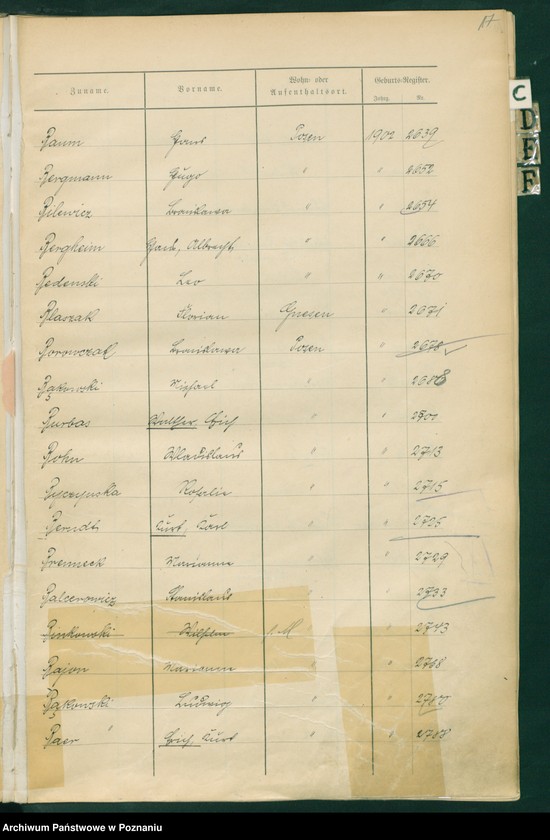 17
Zuname. Vorname. Wohn- oder Aufenthaltsort. Geburts-Register.
Jahrg. Nr.
Baum Hans Posen 1902 2639
Bergmann Hugo " " 2652
Bilewicz Bronislawa " " 2654
Bergheim Albrecht " " 2666
Bedenski Leo " " 2670
Blaszak Florian Gnesen " 2671
Borowczak Bronislawa Posen " 2678
Bąkowski Michael " " 2688
Burbas Walther Erich " " 2701
Bohn Wladislaus " " 2713
Byczynska Rosalie " " 2715
Berndt Kurt, Karl " " 2725
Brenneck Marianne " " 2729
Balcerowicz Stanislaus " " 2733
Binkowski Wilhelm " 2743
Bajon Marianne " " 2768
Bąkowski Ludwig " "
Baer " Erich, Kurt " " 2788
C
D
E
F
Archiwum Państwowe w Poznaniu